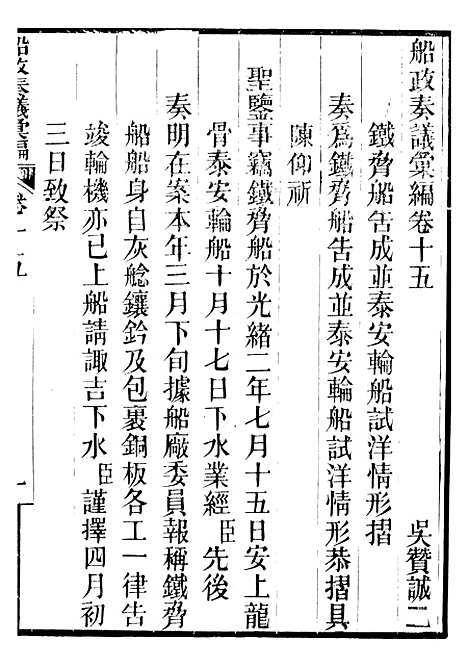 船政奏議彙編卷十五　吳贊誠二
鐵脅船告成並泰安輪船試洋情形摺
奏爲鐵脅船告成並泰安輪船試洋情形恭摺具
陳仰祈
聖鑒事竊鐵脅船於光緒二年七月十五日安上龍
骨泰安輪船十月十七日下水業經臣先後
奏明在案本年三月下旬據船廠委員報稱鐵脅
船船身自灰艌鑲釺及包裹銅板各工一律告
竣輪機亦已上船請諏吉下水臣謹擇四月初
三日致祭
船政奏議彙編　卷十五　一